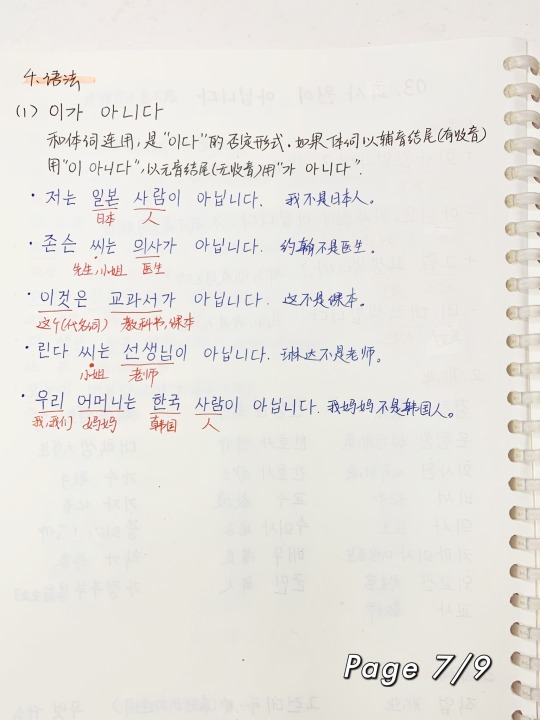 4. 语法
(1) 이가 아니다
和体词连用,是"이다"的否定形式.如果体词以辅音结尾(有收音)
用"이 아니다",以元音结尾(无收音)用"가 아니다".
· 저는 일본 사람이 아닙니다. 我不是日本人。
日本 人
· 존슨 씨는 의사가 아닙니다. 约翰不是医生。
先生,小姐 医生
· 이것은 교과서가 아닙니다. 这不是课本。
这个(代名词) 教科书,课本
· 린다 씨는 선생님이 아닙니다. 琳达不是老师。
小姐 老师
· 우리 어머니는 한국 사람이 아닙니다. 我妈妈不是韩国人。
我,我们 妈妈 韩国 人
Page 7/9